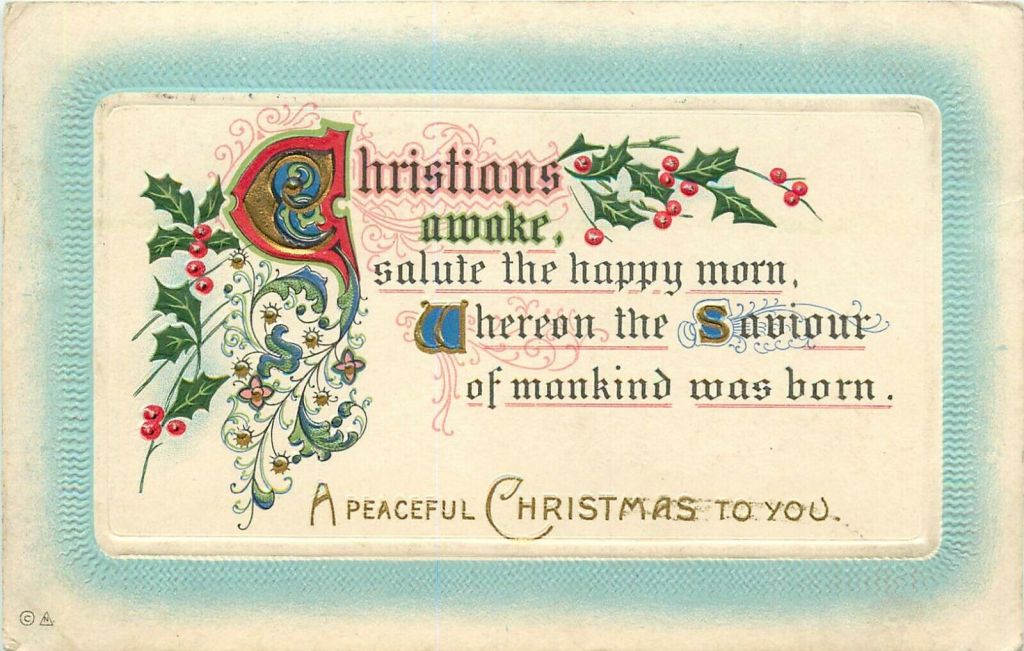 Christians
awake,
salute the happy morn,
Whereon the Saviour
of mankind was born.
A PEACEFUL CHRISTMAS TO YOU.
© N